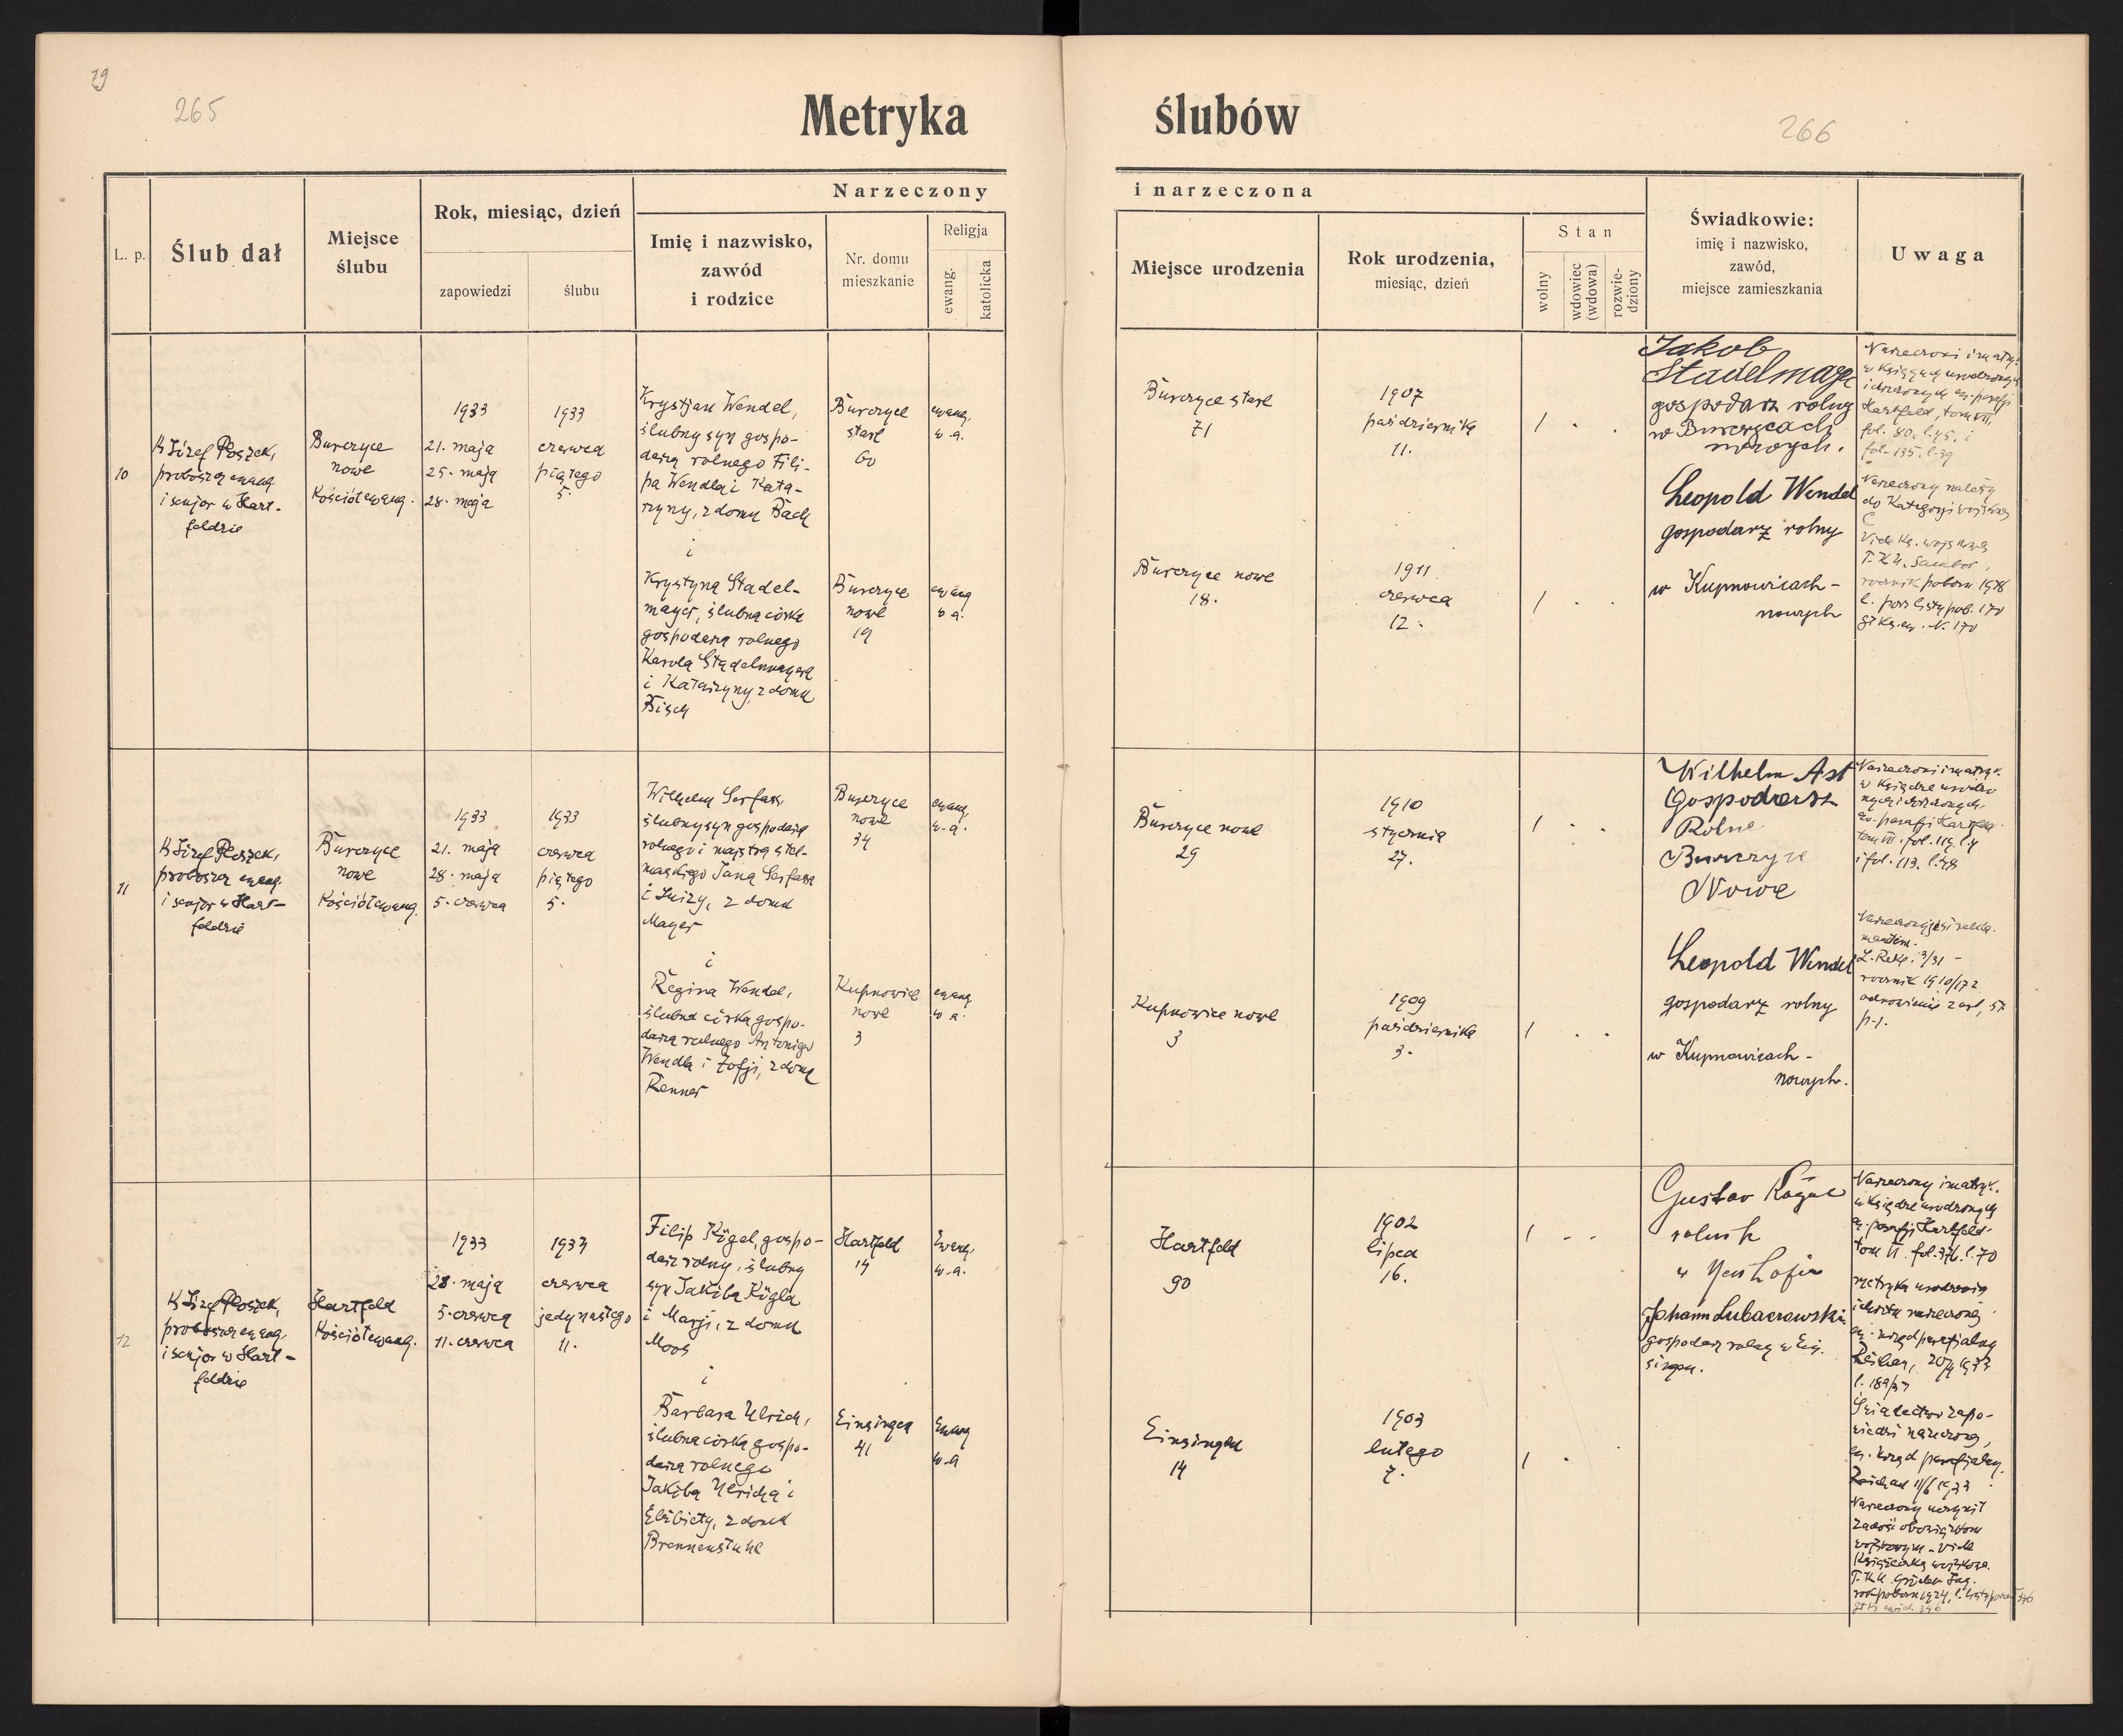 19
265
266
Metryka ślubów
Narzeczony i narzeczona
L. p.
Ślub dał
Miejsce
ślubu
Rok, miesiąc, dzień
zapowiedzi
ślubu
Imię i nazwisko,
zawód
i rodzice
Nr. domu
mieszkanie
Religja
ewang.
katolicka
Miejsce urodzenia
Rok urodzenia,
miesiąc, dzień
Stan
wolny
wdowiec
(wdowa)
rozwie-
dziony
Świadkowie:
imię i nazwisko,
zawód,
miejsce zamieszkania
Uwaga
10
X Józef Płoszek,
proboszcz ewang.
i senjor w Hart-
feldzie
Burczyce
nowe
Kościół ewang.
1933
21. maja
25. maja
28. maja
1933
czerwca
piątego
5.
Krystjan Wendel,
ślubny syn gospo-
darza rolnego Fili-
pa Wendla i Kata-
rzyny, z domu Bach
i
Krystyna Stadel-
mayer, ślubna córka
gospodarza rolnego
Karola Stadelmayera
i Katarzyny, z domu
Bisch
Burczyce
stare
60
Burczyce
nowe
19
ewang.
w. a.
ewang
w a.
Burczyce stare
71
Burczyce nowe
18.
1907
października
11.
1911
czerwca
12.
1 . .
1 . .
Jakob
Stadelmayer
gospodarz rolny
w Burczycach
nowych.
Leopold Wendel
gospodarz rolny
w Kupnowicach-
nowych
Narzeczeni imatr.
w Księgach urodzonych
i chrzczonych ew. parafji
Hartfeld, tom VII,
fol. 80. l. 45. i
fol. 135. l. 39
Narzeczony należy
do Kategorji wojskowej
C
Vide Ks. wojskowa
P.K.U. Sambor,
rocznik poboru 1928
l. porz listy pob. 170
11
X Józef Płoszek,
proboszcz ewang.
i senjor w Hart-
feldzie
Burczyce
nowe
Kościół ewang.
1933
21. maja
28. maja
5. czerwca
1933
czerwca
piątego
5.
Wilhelm Serfass,
ślubny syn gospodarza
rolnego i majstra stel-
maskiego Jana Serfassa
i Luizy, z domu
Mayer
i
Regina Wendel,
ślubna córka gospo-
darza rolnego Antoniego
Wendla i Zofji, z domu
Renner
Burczyce
nowe
34
Kupnowice
nowe
3
ewang.
w. a.
ewang
w a.
Burczyce nowe
29
Kupnowice nowe
3
1910
stycznia
27.
1909
października
3.
1 . .
1 . .
Wilhelm Ast
Gospodarz
Rolne
Burczyce
Nowe
Leopold Wendel
gospodarz rolny
w Kupnowicach-
nowych.
Narzeczeni imatryk.
w Księdze urodzo
nych i chrzczonych
ew. parafji Hartfeld
tom VII. fol. 119. l. 4
i fol. 113. l. 48
rocznik 1910/172
12
X Józef Płoszek,
proboszcz ewang.
i senjor w Hart-
feldzie
Hartfeld
Kościół ewang.
1933
28. maja
5. czerwca
11. czerwca
1933
czerwca
jedynastego
11.
Filip Kögel, gospo-
darz rolny, ślubny
syn Jakóba Kögla
i Marji, z domu
Moos
i
Barbara Ulrich,
ślubna córka gospo-
darza rolnego
Jakóba Ulricha i
Elżbiety, z domu
Brennenstuhl
Hartfeld
14
Einsingen
41
Ewang.
w. a.
Ewang
w. a
Hartfeld
90
Einsingen
14
1902
lipca
16.
1903
lutego
7.
1 . .
1 .
Gustav Kögel
rolnik
w Neuhofie
Johann Lubaczowski
gospodarz rolny w Ein-
singen.
Narzeczony imatryk.
w Księdze urodzonych
ew. parafji Hartfeld
tom VI. fol. 376. l. 70
metryka urodzenia
i chrztu narzeczonej
ew. urząd parafjalny
l. 189/33
Świadectwo zapo-
wiedzi narzeczonej,
ew. urząd parafjalny
11/6 1933
Narzeczony uczynił
zadość obowiązkom
wojskowym - vide
Książeczka wojskowa
P.K.U. Gródek Jag.